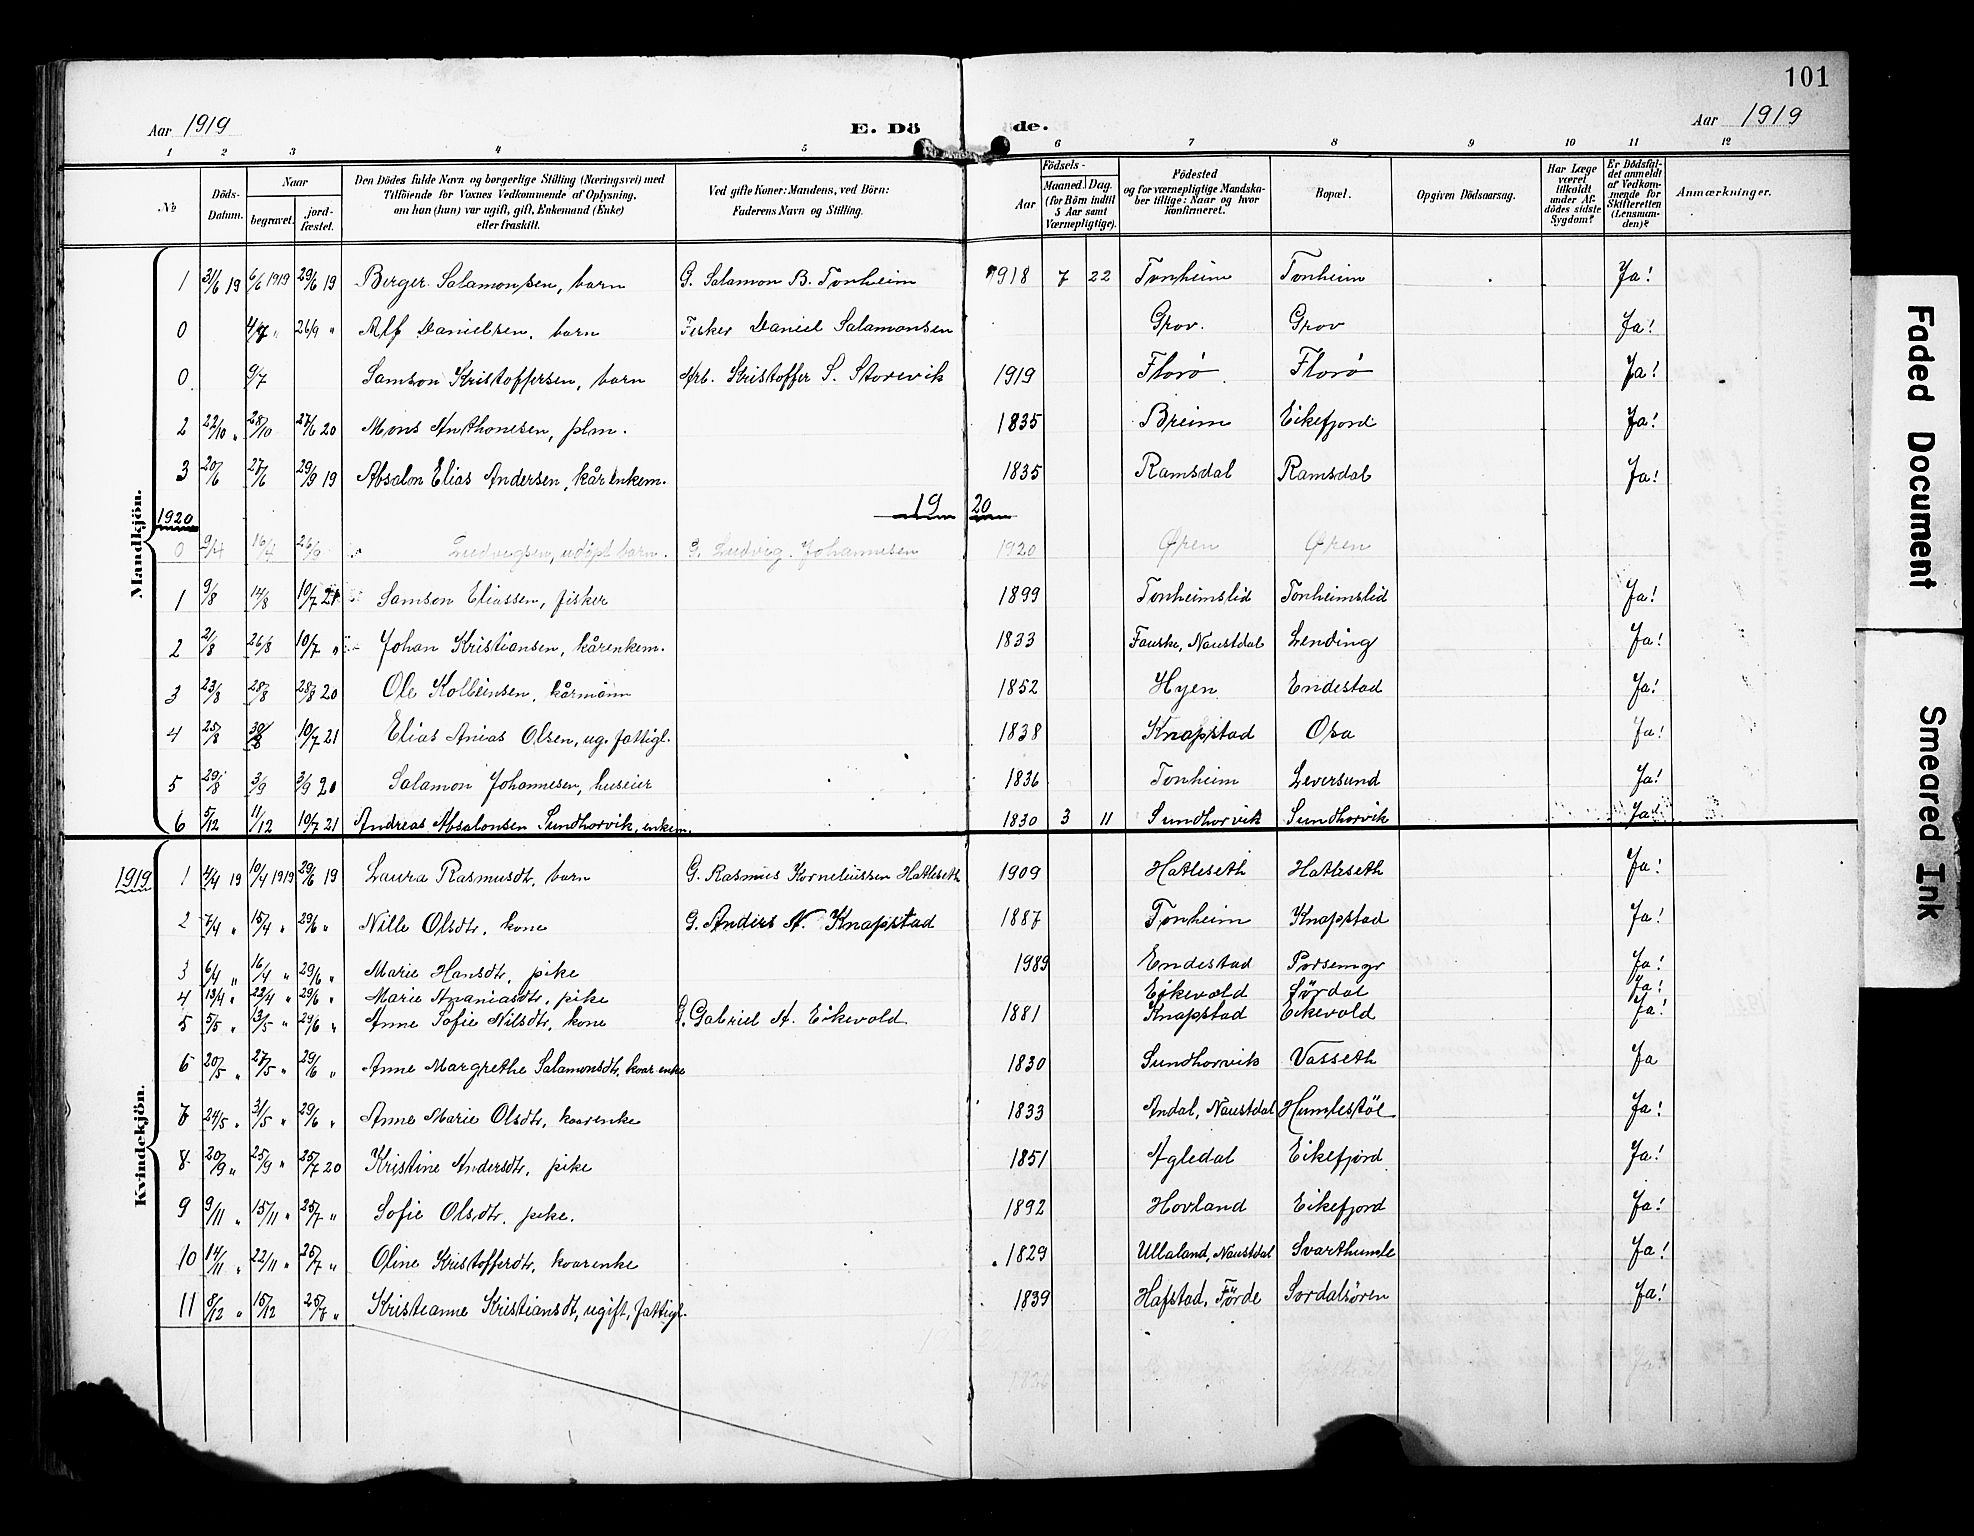 101
Aar 1919 E. Dö de. Aar 1919
1 2 3 4 5 6 7 8 9 10 11 12
№
Döds-Datum.
Naar
begravet.
jordfæstet.
Den Dödes fulde Navn og borgerlige Stilling (Næringsvei) med Tilföiende för Voxnes Vedkommende af Oplysning, om han (hun) var ugift, gift, Enkemand (Enke) eller fraskilt.
Ved gifte Koner: Mandens, ved Börn: Faderens Navn og Stilling.
Födsels-
Aar
Maaned. Dag.
(for Börn indtil 5 Aar samt Værnepligtige).
Födested og for værnepligtige Mandskaber tillige: Naar og hvor konfirmeret.
Bopæl.
Opgiven Dödsaarsag.
Har Læge været tilkaldt under Afdödes sidste Sygdom?
Er Dödsfaldet anmeldt af Vedkommende for Skifteretten (Lensmanden)?
Anmærkninger.
Mandkjön.
1 31/6 19 6/6 1919 29/6 19 Berger Salamonsen, barn G. Salamon B. Tonheim 1918 7 22 Tonheim Tonheim Ja!
0 4/7 " 26/9 " Alf Danielsen, barn Fisker Daniel Salamonsen Grov. Grov Ja!
0. 9/7 Samson Kristoffersen, barn Arb. Kristoffer S. Storevik 1919 Florø Florø Ja!
2 22/10 " 28/10 27/6 20 Mons Anthonesen, plm. 1835 Breim Eikefjord Ja!
3 20/6 27/6 29/9 19 Absalon Elias Andersen, kårenkem. 1835 Ramsdal Ramsdal Ja!
1920 19 20
0 9/4 16/4 26/6 Ludvigsen, udöpt barn. G. Ludvig Johannesen 1920 Øren Øren
1 9/8 14/8 10/7 21 Samson Eliassen, fisker 1899 Tonheimslid Tonheimslid Ja!
2 2/8 26/8 10/7 " Johan Kristiansen, kårenkem. 1833 Fauske, Naustdal Lending Ja!
3 23/8 28/8 28/8 20 Ole Kolbeinsen, kårmann 1852 Hyen Endestad Ja!
4 25/8 30/8 10/7 21 Elias Anias Olsen, ug. fattigl. 1838 Knapstad Osa Ja!
5 29/8 3/9 3/9 20 Salamon Johannesen, huseier 1836 Tonheim Leversund Ja!
6 5/12 11/12 10/7 21 Andreas Absalonsen Sundhorvik, enkem. 1830 3 11 Sundhorvik Sundhorvik Ja!
Kvindekjön.
1919 1 4/4 19 10/4 1919 29/6 19 Laura Rasmusdt, barn G. Rasmus Korneliussen Hatleseth 1909 Hatleseth Hatleseth Ja!
2 7/4 " 15/4 " 29/6 " Nille Olsdtr, kone G. Anders A. Knapstad 1887 Tonheim Knapstad Ja!
3 6/4 " 16/4 " 29/6 " Marie Hansdtr, pike 1989 Endestad Porsemyr Ja!
4 13/4 " 23/4 " 29/6 " Marie Ananiasdtr, pike Eikevold Sørdal Ja!
5 5/5 " 13/5 " 24/6 " Anne Sofie Nilsdtr, kone G. Gabriel A. Eikevold 1881 Knapstad Eikevold Ja!
6 20/5 " 27/5 " 29/6 " Anne Margrethe Salamonsdtr, kvar enke 1830 Sundhorvik Vasseth Ja
7 24/5 " 31/5 " 29/6 " Anne Marie Olsdtr, kaarenke 1833 Andal, Naustdal Humlestøl Ja!
8 20/9 " 25/9 " 25/7 20 Kristine Andersdtr, pike 1851 Agledal Eikefjord Ja!
9 9/11 " 15/11 " 25/7 " Sofie Olsdtr, pike. 1892 Hovland Eikefjord Ja!
10 14/11 " 22/11 " 25/7 " Oline Kristofferdtr, kvarenke 1829 Ullaland, Naustdal Svarthumle Ja!
11 8/12 " 15/12 25/7 " Kristianne Kristiansdt, ugift, fattigl. 1839 Hafstad, Förde Sordalsören Ja!
Faded Document
Smeared Ink